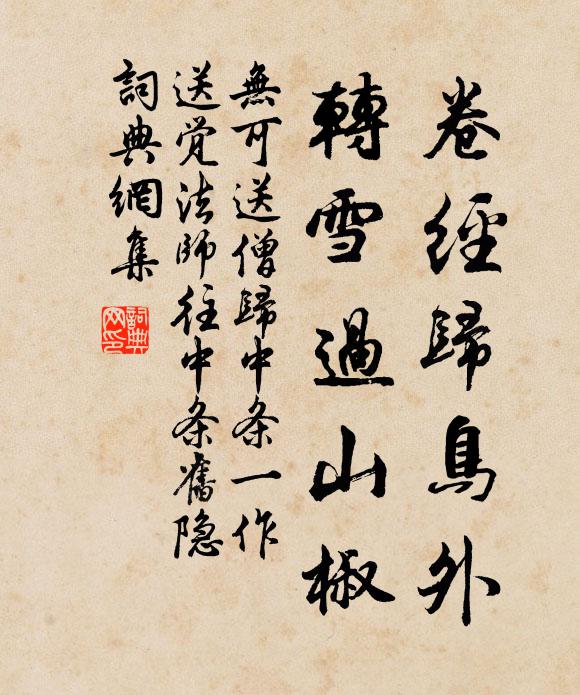 卷經歸鳥外
轉雪過山椒
無可送僧歸中条一作
送覚法師往中条舊隐
詞典網集
詞典网印